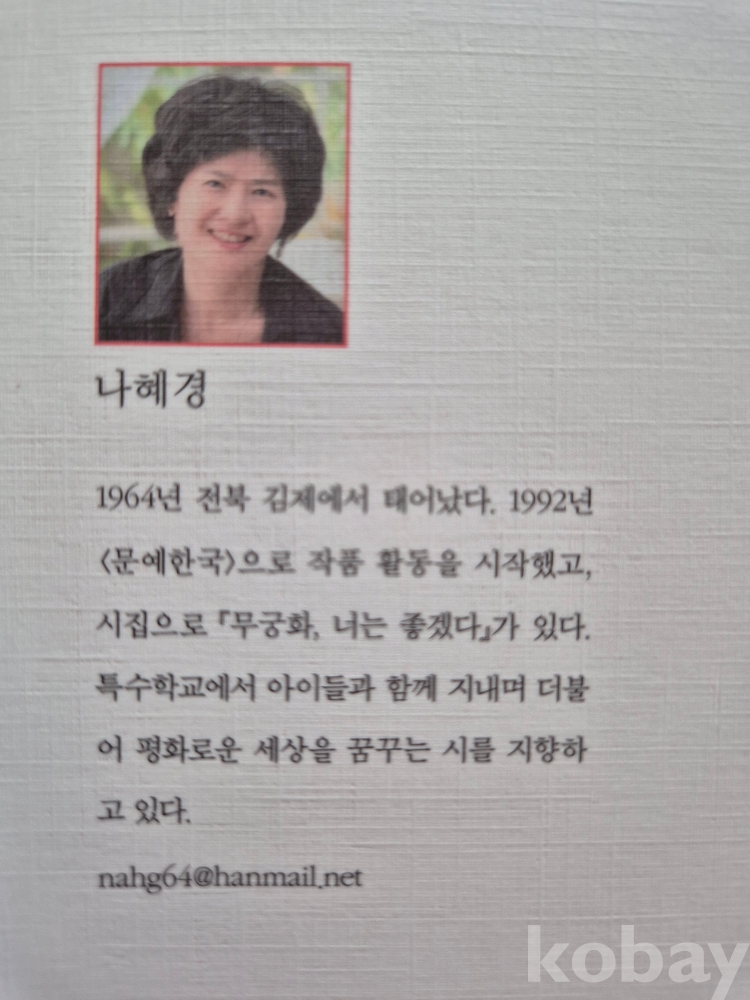 나혜경
1964년 전북 김제에서 태어났다. 1992년
〈문예한국〉으로 작품 활동을 시작했고,
시집으로 『무궁화, 너는 좋겠다』가 있다.
특수학교에서 아이들과 함께 지내며 더불
어 평화로운 세상을 꿈꾸는 시를 지향하
고 있다.
nahg64@hanmail.net
kobay